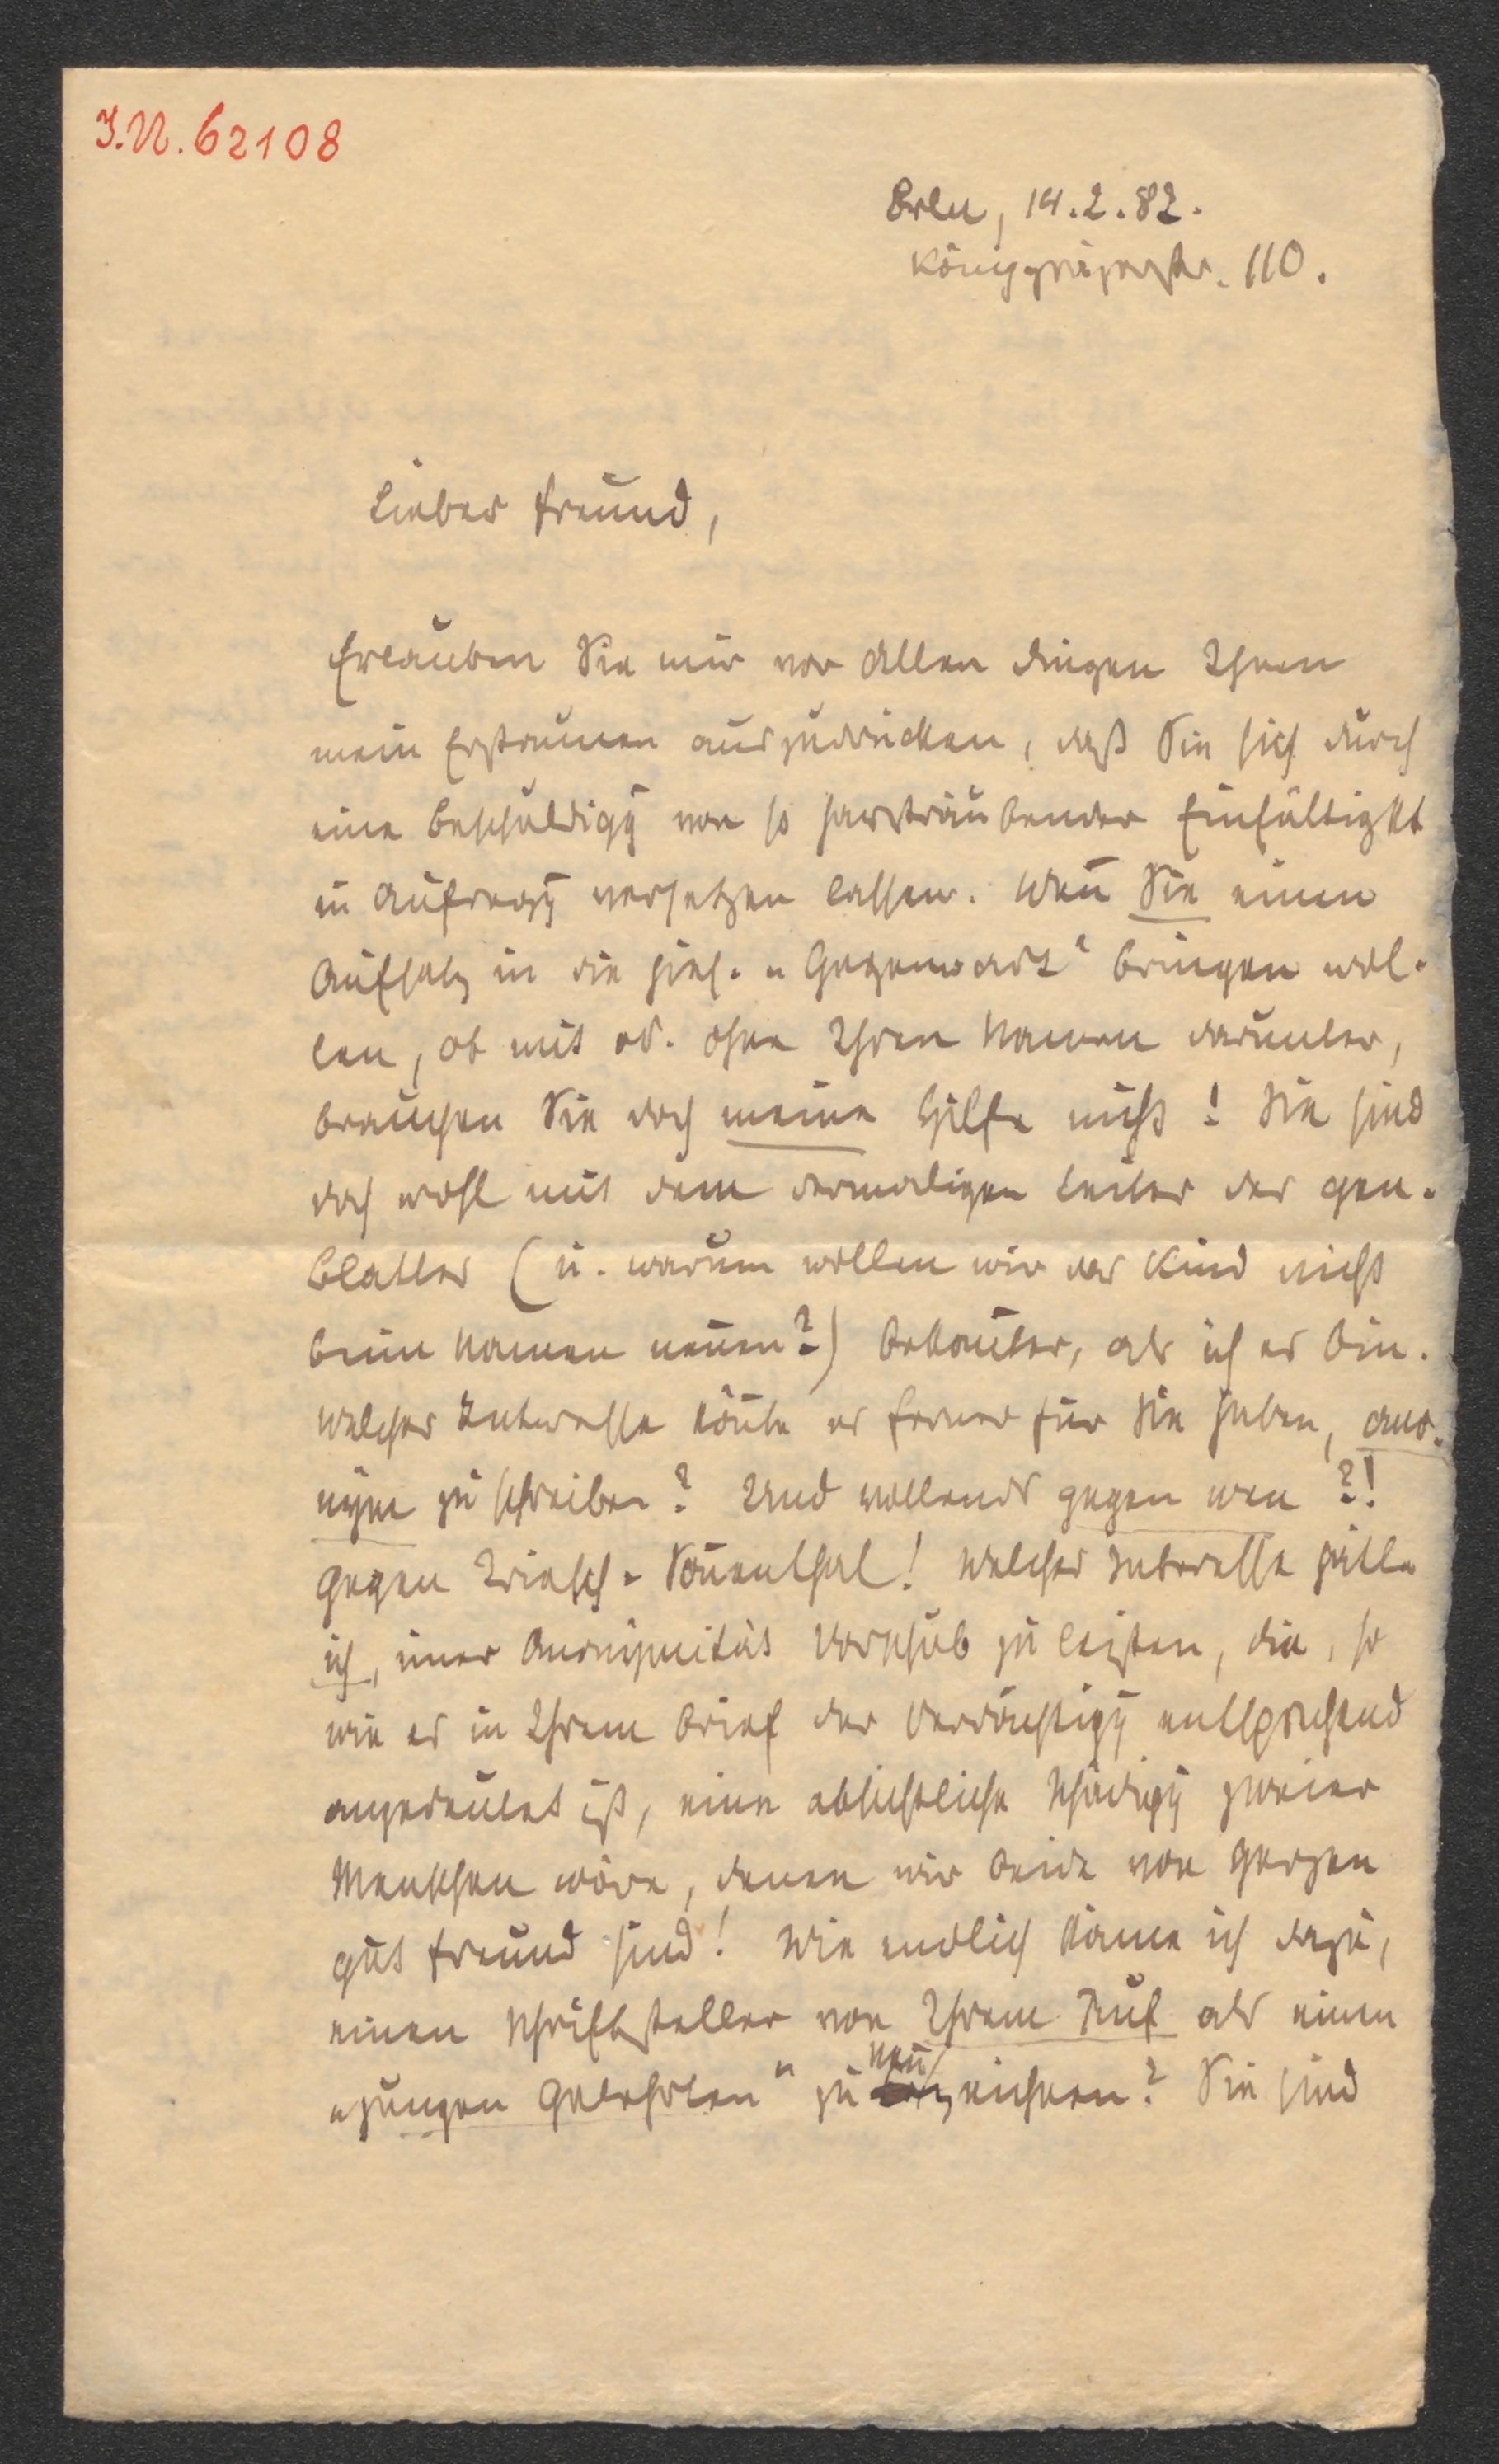 I.N. 62108
Brln, 14.2.82.
Königgrätzerstr. 110.
Lieber Freund,
Erlauben Sie mir vor Allen Dingen Ihnen
mein Erstaunen auszudrücken, daß Sie sich durch
eine Beschuldigg von so haarsträubender Einfältigkt
in Aufregg versetzen lassen. Weñ Sie einen
Aufsatz in die hies. „Gegenwart“ bringen wol-
len, ob mit od. ohne Ihren Namen darunter,
brauchen Sie doch meine Hilfe nicht! Sie sind
doch wohl mit dem dermaligen Leiter des gen.
Blattes (u. warum wollen wir das Kind nicht
beim Namen neñen?) bekañter, als ich es bin.
Welches Interesse köñte es ferner für Sie haben, ano-
nym zu schreiben? Und vollends gegen wen?!
Gegen Triesch-Soñenthal! Welches Interesse hätte
ich, einer Anonymität Vorschub zu leisten, die, so
wie es in Ihrem Brief der Verdächtigg entsprechend
angedeutet ist, eine absichtliche Schädigg zweier
Menschen wäre, denen wir beide von Herzen
gut Freund sind! Wie endlich käme ich dazu,
einen Schriftsteller von Ihrem Ruf als einen
„jungen Gelehrten“ zu eichnen? Sie sind